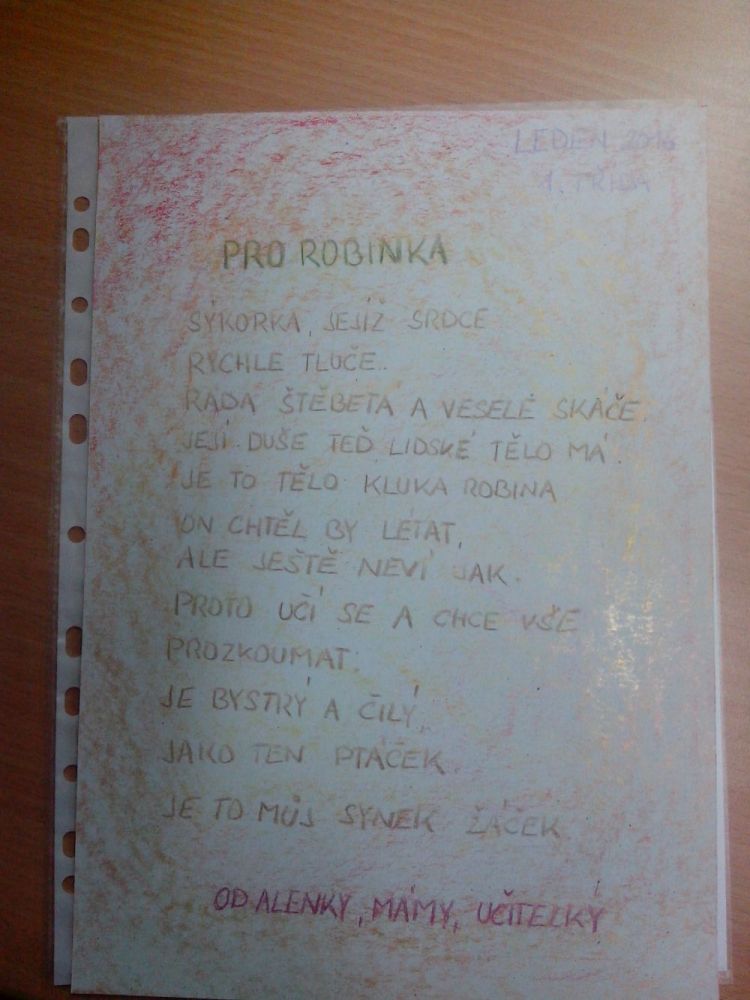 LEDEN 2016
1. TŘÍDA
PRO ROBINKA
SÝKORKA, JEJÍŽ SRDCE
RYCHLE TLUČE.
RÁDA ŠTĚBETÁ A VESELE SKÁČE.
JEJÍ DUŠE TEĎ LIDSKÉ TĚLO MÁ.
JE TO TĚLO KLUKA ROBINA
ON CHTĚL BY LÉTAT,
ALE JEŠTĚ NEVÍ JAK.
PROTO UČÍ SE A CHCE VŠE
PROZKOUMAT.
JE BYSTRÝ A ČILÝ,
JAKO TEN PTÁČEK.
JE TO MŮJ SYNEK ŽÁČEK
OD ALENKY, MÁMY, UČITELKY